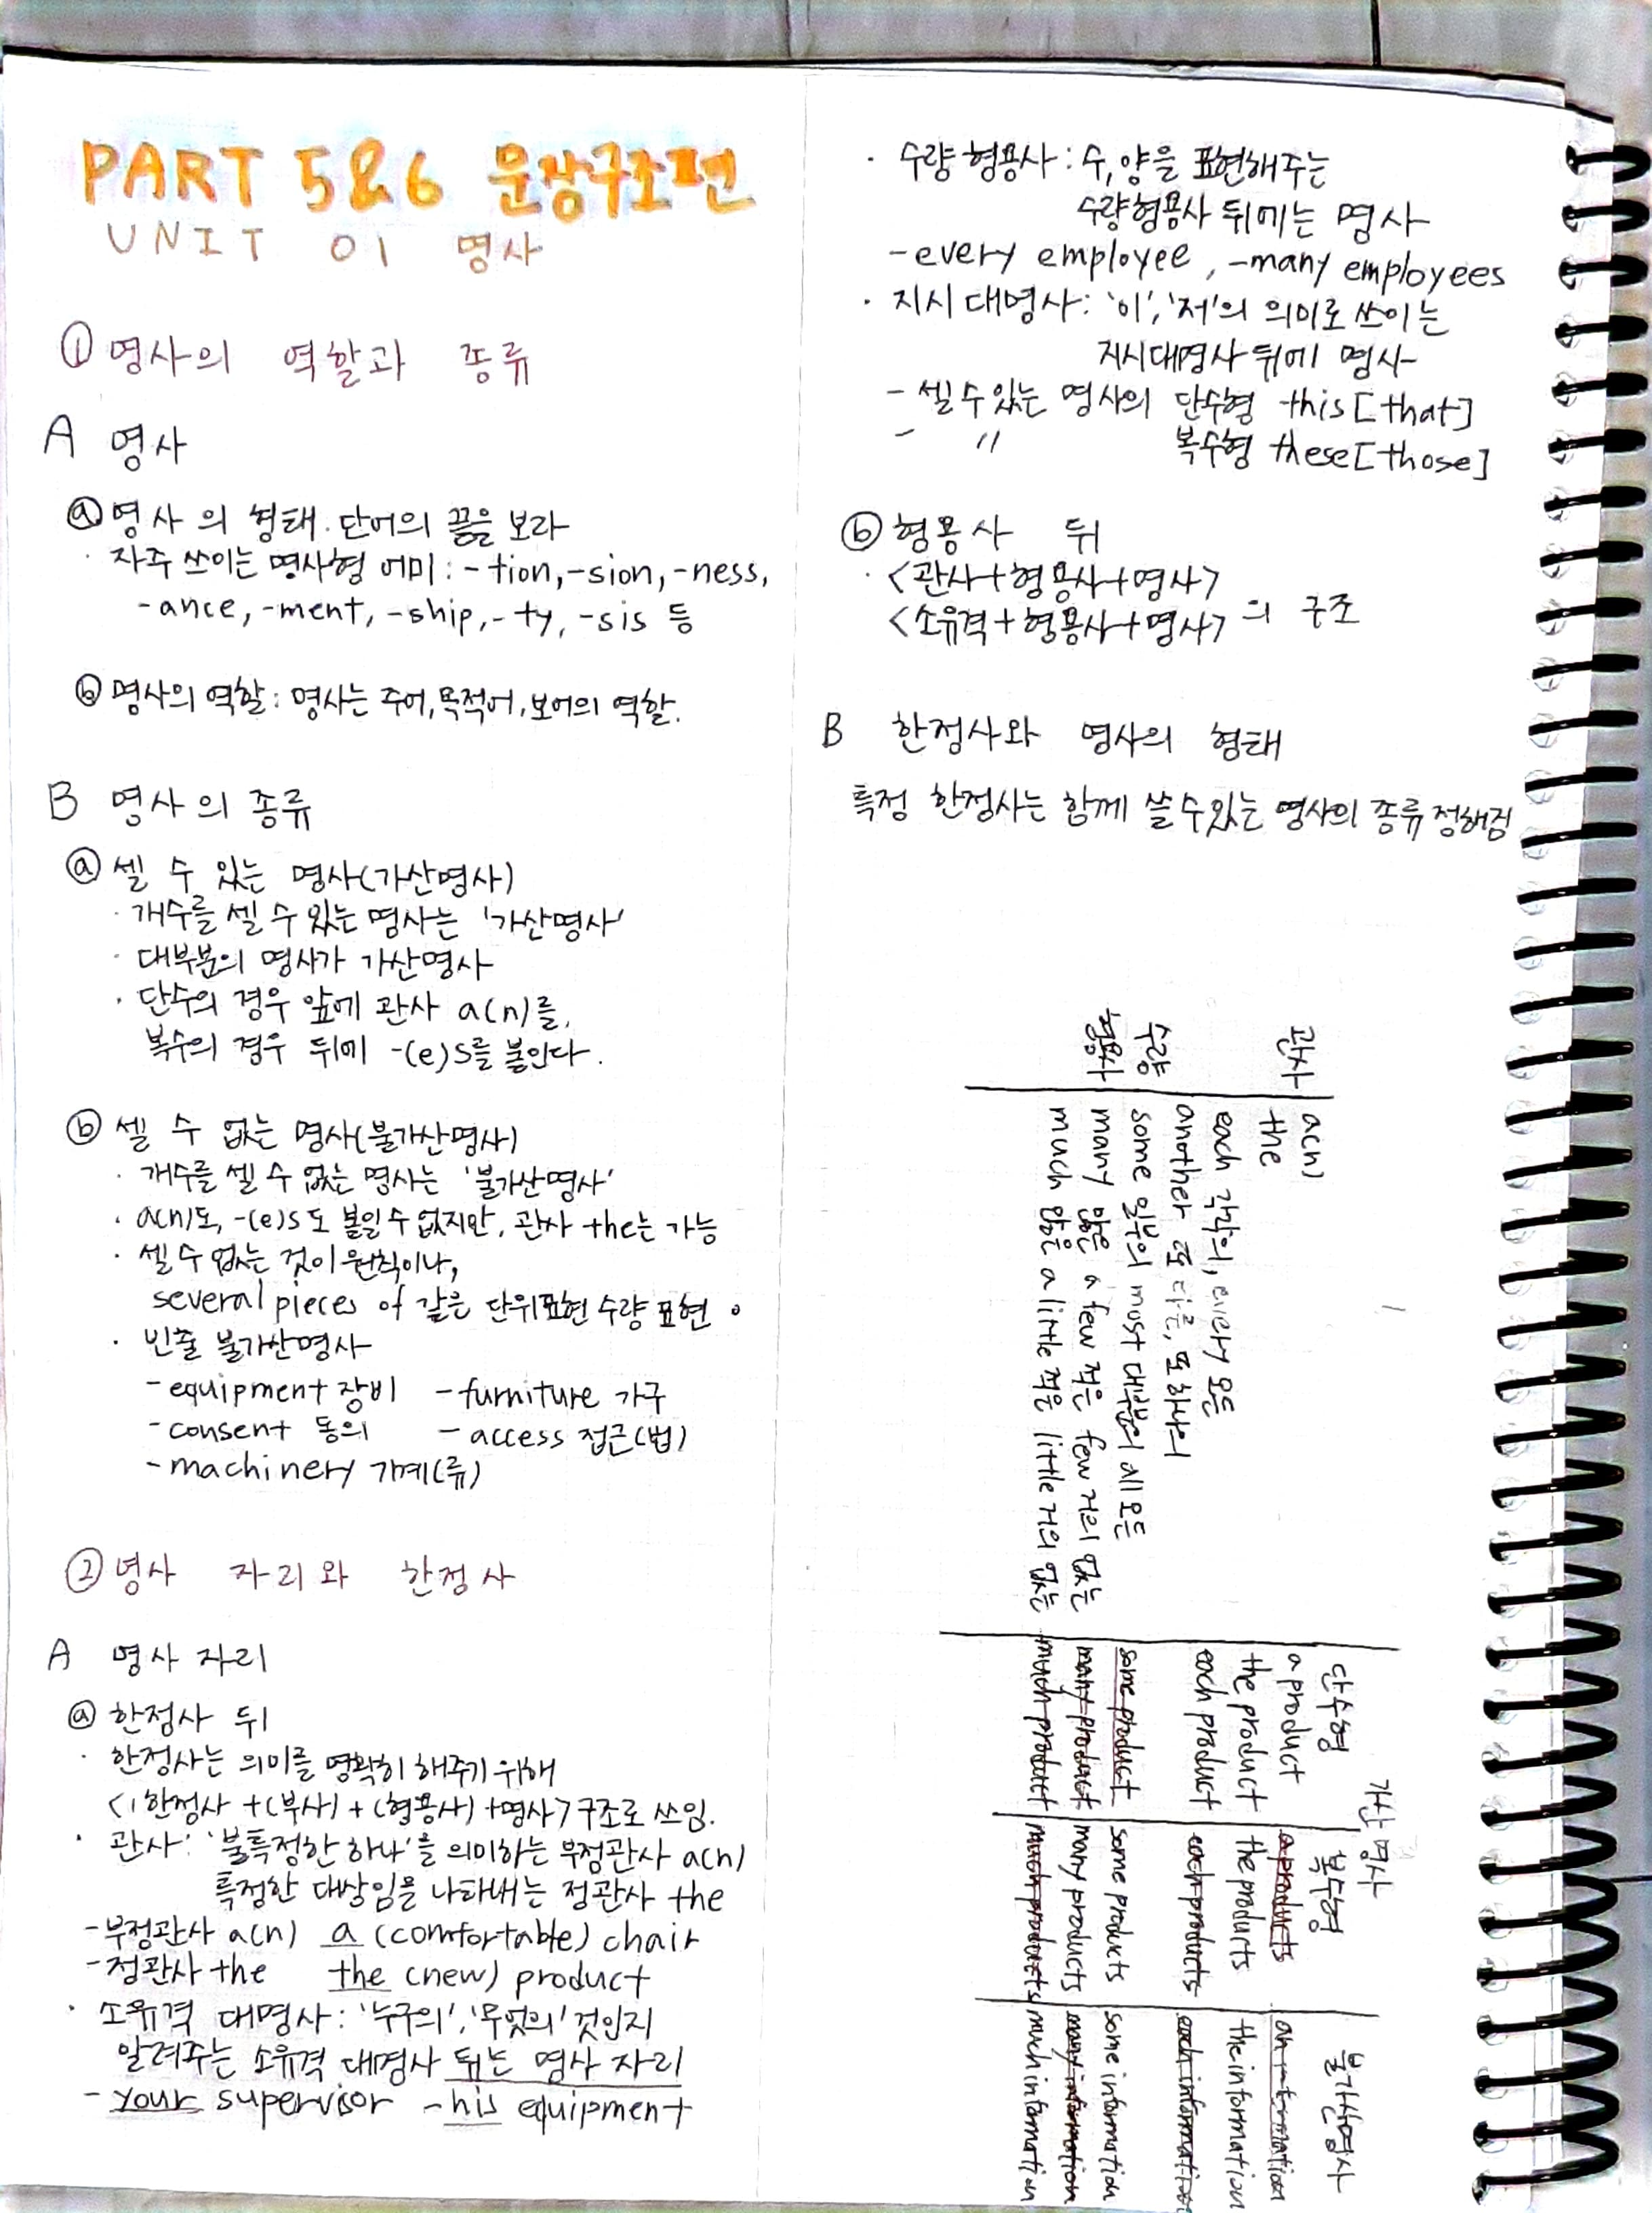 PART 5&6 문장구조편
UNIT 01 명사
① 명사의 역할과 종류
A 명사
ⓐ 명사의 형태. 단어의 끝을 보라
· 자주 쓰이는 명사형 어미 : -tion, -sion, -ness,
-ance, -ment, -ship, -ty, -sis 등
ⓑ 명사의 역할 : 명사는 주어, 목적어, 보어의 역할.
B 명사의 종류
ⓐ 셀 수 있는 명사(가산명사)
· 개수를 셀 수 있는 명사는 '가산명사'
· 대부분의 명사가 가산명사
· 단수의 경우 앞에 관사 a(n)를,
복수의 경우 뒤에 -(e)s를 붙인다.
ⓑ 셀 수 없는 명사(불가산명사)
· 개수를 셀 수 없는 명사는 '불가산명사'
· a(n)도, -(e)s도 붙일 수 없지만, 관사 the는 가능
· 셀 수 없는 것이 원칙이나,
several pieces of 같은 단위표현 수량 표현 。
· 빈출 불가산명사
- equipment 장비 - furniture 가구
- consent 동의 - access 접근(법)
- machinery 기계(류)
② 명사 자리와 한정사
A 명사 자리
ⓐ 한정사 뒤
· 한정사는 의미를 명확히 해주기 위해
<(한정사 + (부사) + (형용사) + 명사> 구조로 쓰임.
· 관사 : '불특정한 하나'를 의미하는 부정관사 a(n)
특정한 대상임을 나타내는 정관사 the
- 부정관사 a(n) a (comfortable) chair
- 정관사 the the (new) product
· 소유격 대명사 : '누구의', '무엇의' 것인지
알려주는 소유격 대명사 뒤는 명사 자리
- your supervisor - his equipment
· 수량 형용사 : 수, 양을 표현해주는
수량형용사 뒤에는 명사
- every employee, - many employees
· 지시 대명사 : '이', '저'의 의미로 쓰이는
지시대명사 뒤에 명사
- 셀 수 있는 명사의 단수형 this [that]
- 〃 복수형 these [those]
ⓑ 형용사 뒤
· <관사+형용사+명사>
<소유격+형용사+명사> 의 구조
B 한정사와 명사의 형태
특정 한정사는 함께 쓸 수 있는 명사의 종류 정해짐
가산 명사
단수형 복수형 불가산명사
관사 a(n) a product a products an information
the the product the products the information
each 각각의, every 모든 each product each products each information
수량 another 또 다른, 또 하나의
형용사 some 일부의 most 대부분의 all 모든 some product some products some information
many 많은 a few 적은 few 거의 없는 many product many products many information
much 많은 a little 적은 little 거의 없는 much product much products much information